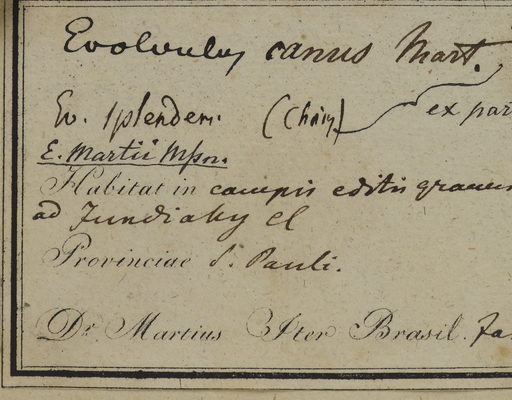 Evolvulus canus Mart.
Ev. splendens. (Choisy) ex par
E. Martii Mssn.
Habitat in campis editis
ad Jundiahy el
Provinciae S. Pauli.
Dr. Martius Iter Brasil.